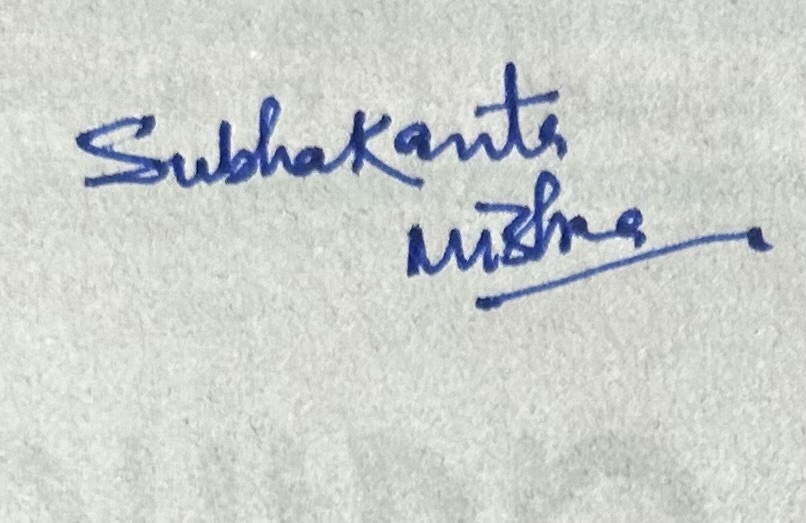 Subhakanta
Mishra